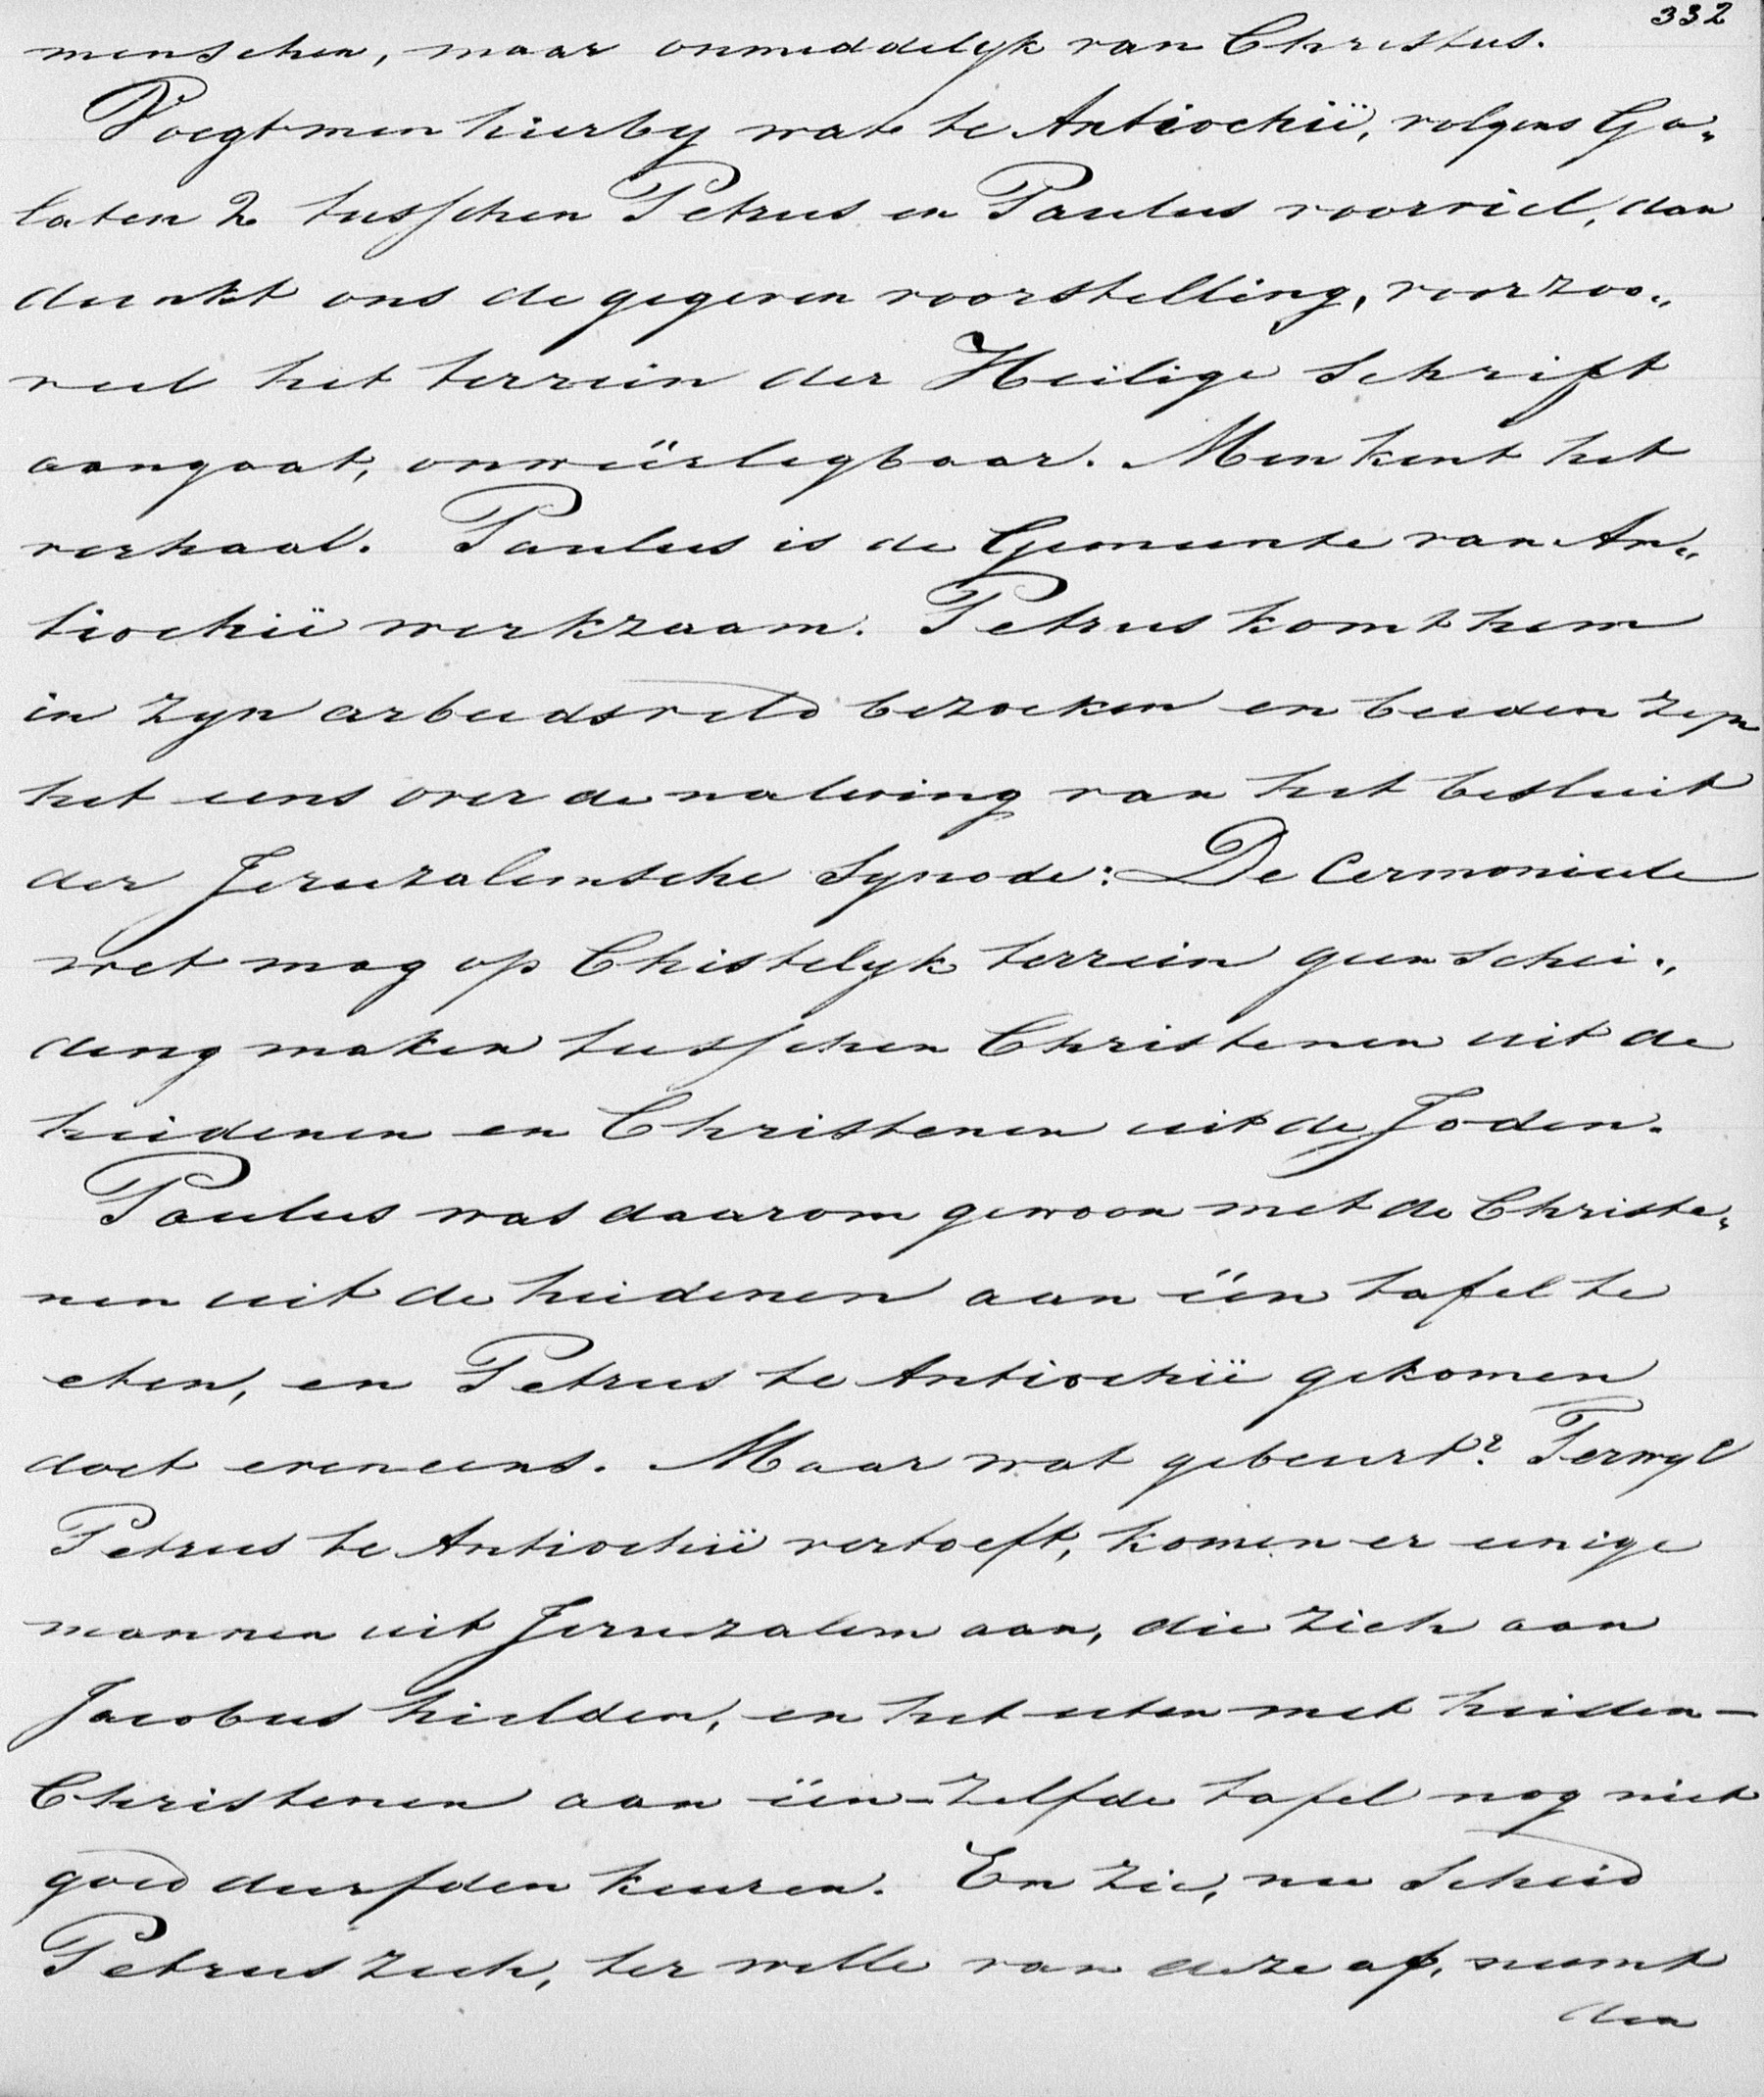 332
menschen, maar onmiddelyk van Christus.
Voegt men hierby wat te Antiochië, volgens Ga„
laten 2 tusschen Petrus en Paulus voorviel, dan
dunkt ons de gegeven voorstelling, voorzoo„
veel het terrein der Heilige Schrift
aangaat, onwëerlegbaar. Men kent het
verhaal. Paulus is de Gemeente van An„
tiochië werkzaam. Petrus komt hem
in zyn arbeidsveld bezoeken en beiden zyn
het eens over de naleving van het besluit
der Jeruzalemsche Synode: De Cermonieele
wet mag op Chistelyk terrein geen schei„
ding maken tusschen Christenen uit de
heidenen en Christenen uit de Joden.
Paulus was daarom gewoon met de Christe„
nen uit de heidenen aan ëen tafel te
eten, en Petrus te Antiochië gekomen
doet eveneens. Maar wat gebeurt? Terwyl
Petrus te Antiochië vertoeft, komen er eenige
mannen uit Jeruzalem aan, die zich aan
Jacobus hielden, en het eten met heiden-
Christenen aan ëen-zelfde tafel nog niet
goed durfden keuren. En zie, nu scheid
Petrus zich, ter wille van deze af, neemt
den